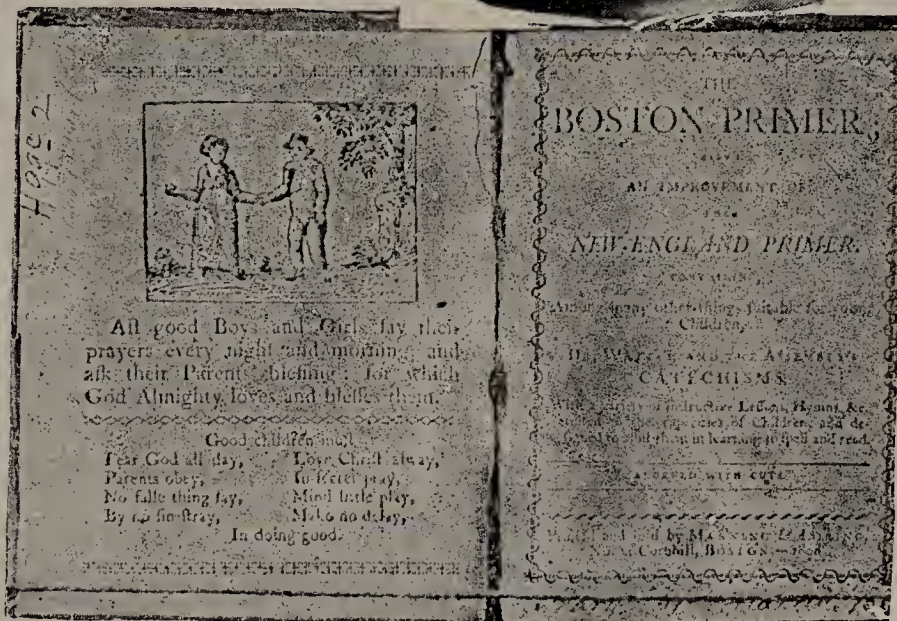 All good Boys and Girls ſay their
prayers every night and morning, and
aſk their Parents bleſſing: for which
God Almighty loves and bleſſes them.
Good children muſt
Fear God all day,
Parents obey,
No falſe thing ſay,
By no ſin ſtray,
Love Chriſt alway,
In ſecret pray,
Mind little play,
Make no delay,
In doing good.
THE
BOSTON PRIMER,
BEING
AN IMPROVEMENT OF
THE
NEW-ENGLAND PRIMER.
CONTAINING,
Among many other things ſuitable for young
Children,
AND THE ASSEMBLY'S
CATECHISMS.
of inſtructive Leſſons, Hymns, &c.
capacities of Children, and de-
them in learning to ſpell and read.
ADORNED WITH CUTS.
by MANNING & LORING,
Cornhill, BOSTON.